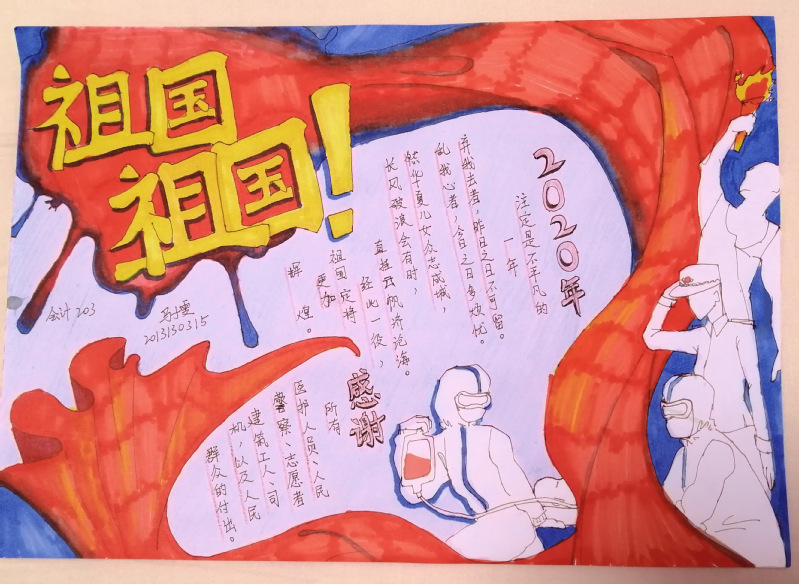 祖国
祖国!
2020年
注定是不平凡的
一年
弃我去者,昨日之日不可留。
乱我心者,今日之日多烦忧。
然华夏儿女众志成城,
长风破浪会有时,
直挂云帆济沧海。
经此一役,
祖国定将
更加
辉煌。
会计203
2013130315
感谢
所有
医护人员、人民
警察、志愿者
建筑工人、司
机,以及人民
群众的付出。